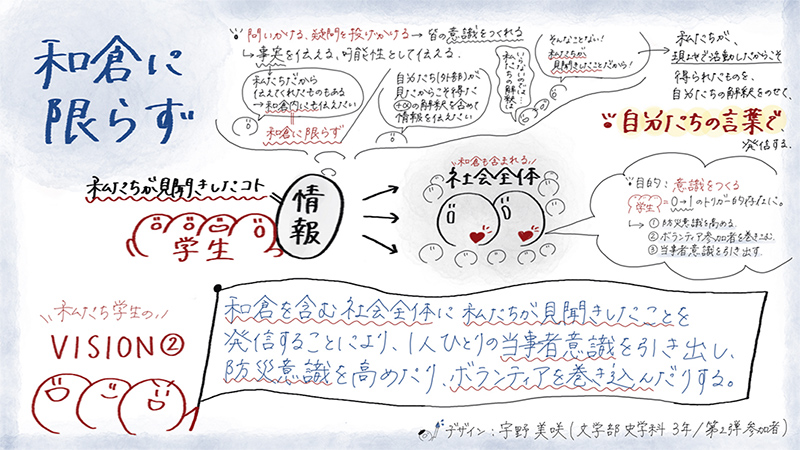 和倉に
限らず
問いかける、疑問を投げかける→皆の意識をつくれる
↳事実を伝える、可能性として伝える.
私たちだから
伝えてくれたものもある
→和倉内にも伝えたい
和倉に限らず
自分たち(外部)が
見たからこそ得た
の解釈を含めて
情報を伝えたい
いらないのでは…
私たちの解釈は
そんなことない!
私たちが
見聞きしたことだから!
私たちが、
現地で活動したからこそ
得られたものを、
自分たちの解釈をのせて、
自分たちの言葉で、
発信する.
私たちが見聞きしたコト
学生
情報
和倉も含まれる
社会全体
目的:意識をつくる
学生=0→1のトリガー的存在に。
↳①防災意識を高める
②ボランティア参加者を巻き込む
③当事者意識を引き出す
私たち学生の
VISION②
和倉を含む社会全体に私たちが見聞きしたことを
発信することにより、1人ひとりの当事者意識を引き出し、
防災意識を高めたり、ボランティアを巻き込んだりする。
デザイン:宇野 美咲(文学部 史学科 3年/第2弾参加者)